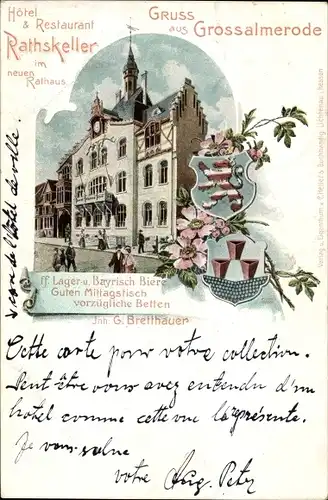 Hôtel
& Restaurant
Rathskeller
im
neuen
Rathaus.
Gruss
aus Grossalmerode
ff. Lager- u. Bayrisch Biere
Guten Mittagstisch
vorzügliche Betten
Inh. G. Bretthauer
l'hôtel de ville.
Cette carte pour votre collection.
Peut être vous avez entendu d'un
hotel comme cette vue la présente.
Je vous salue
votre Aug. Petz